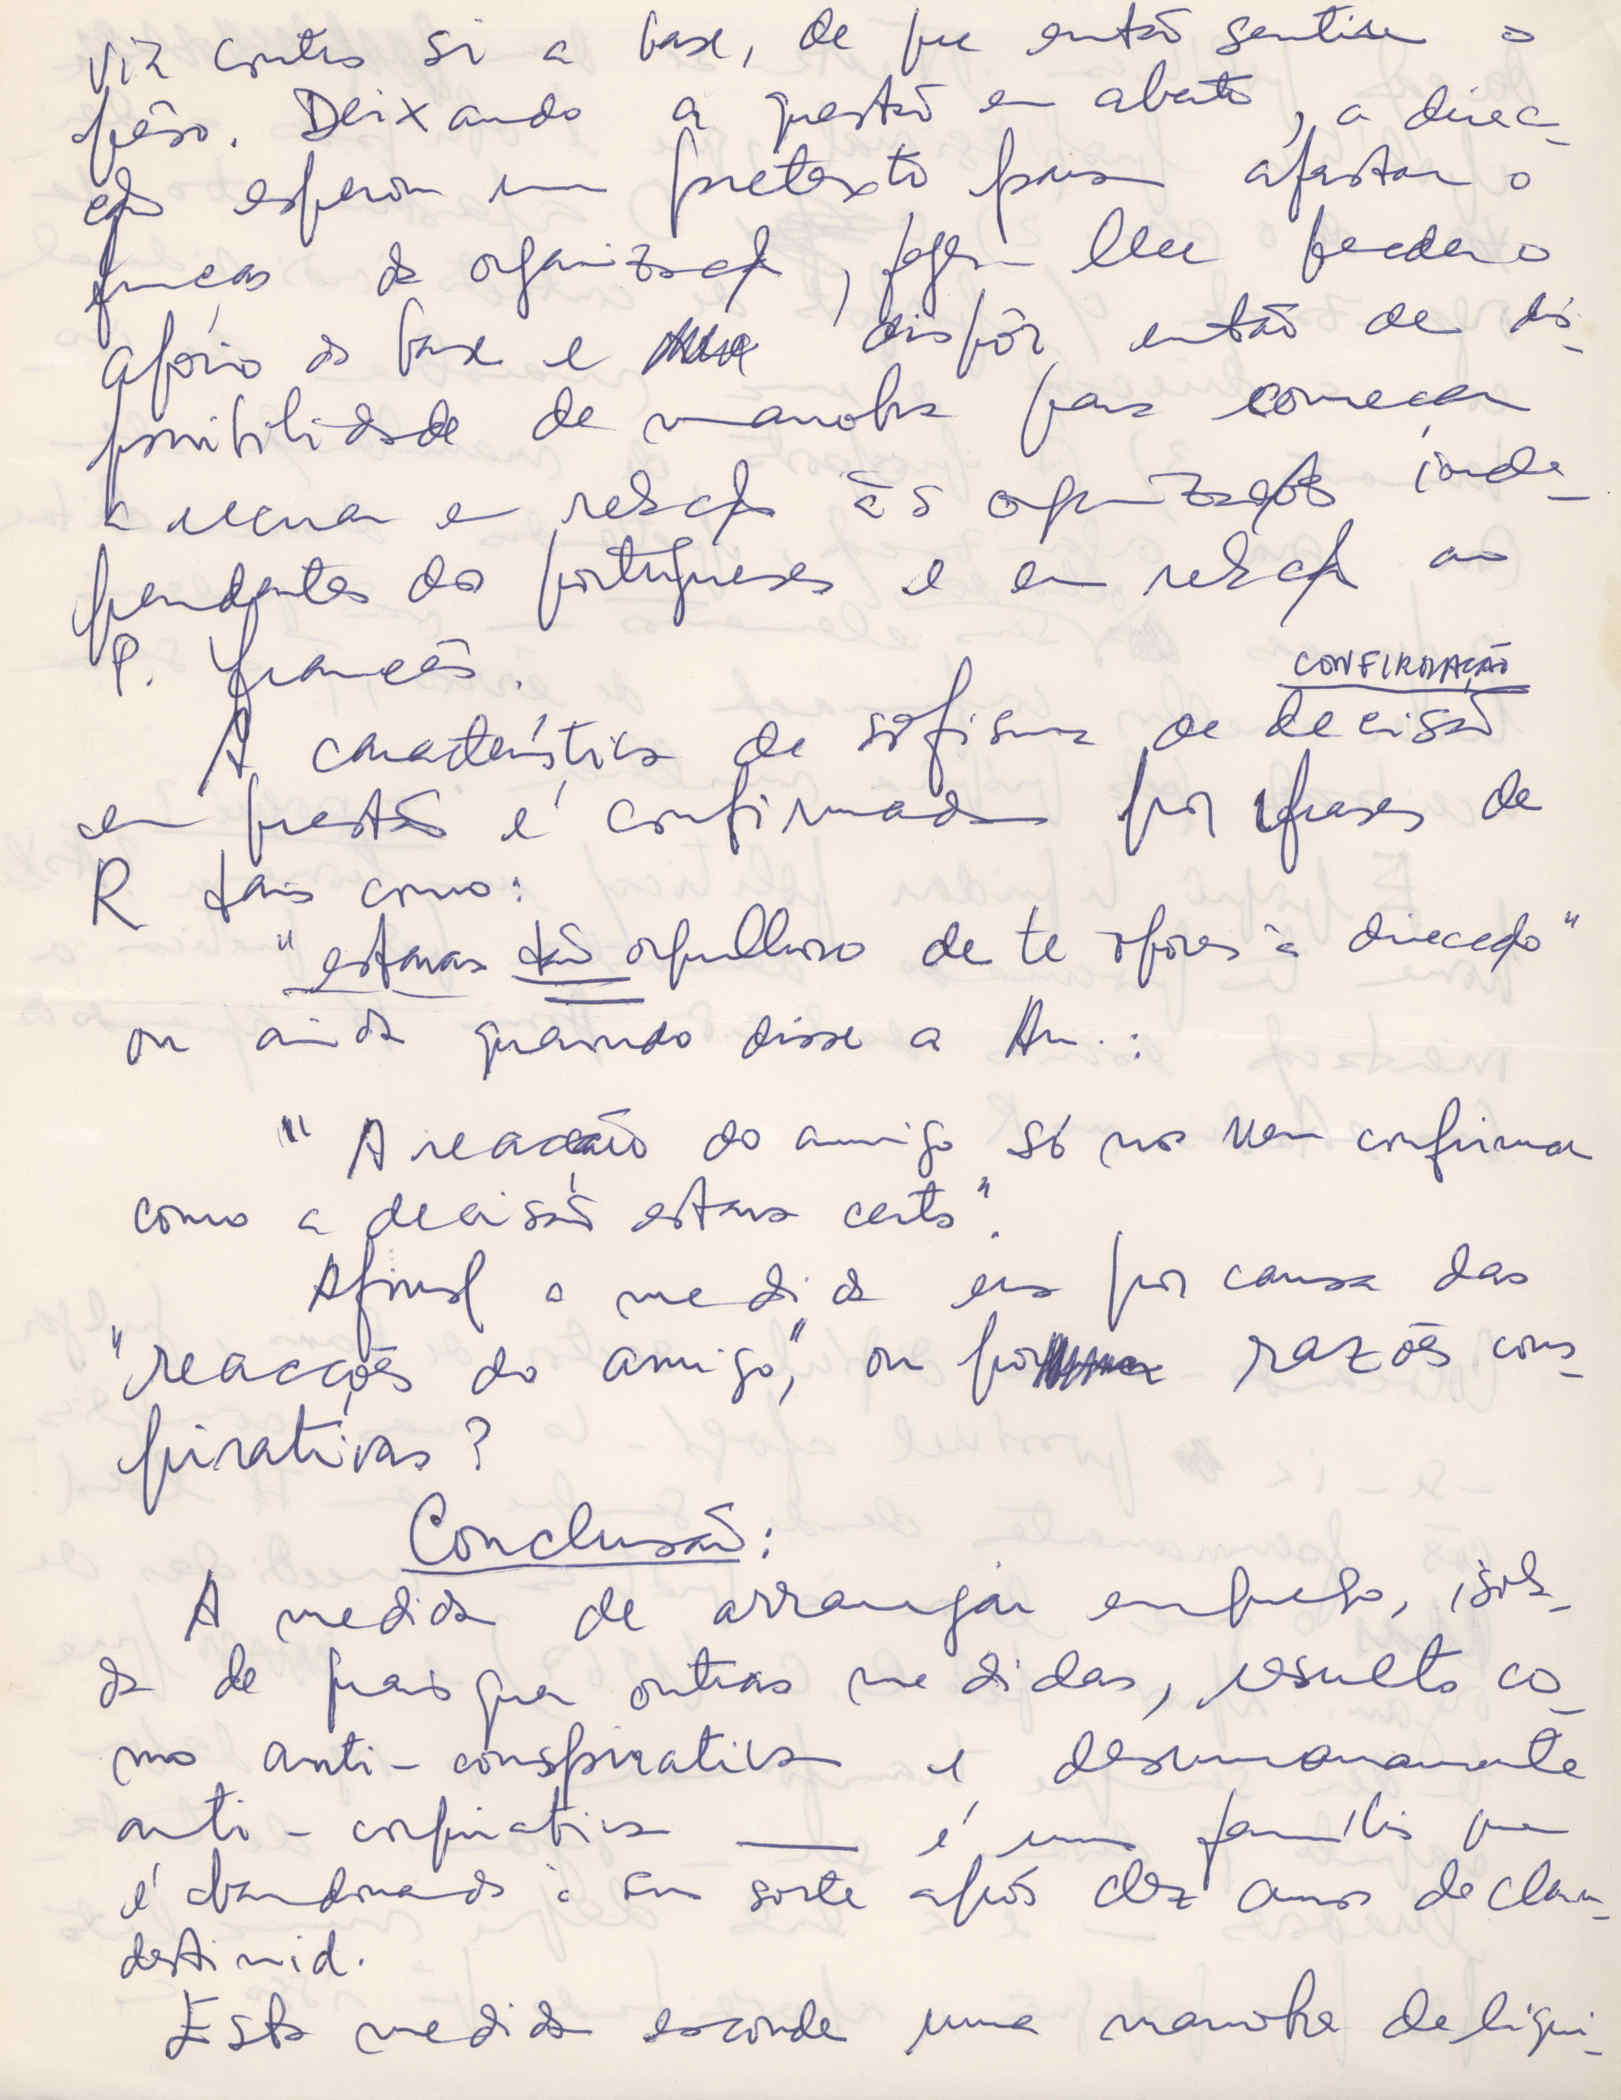 vir contra si a base, de que então sentiu o
pêso. Deixando a questão em aberto, a direc-
ção esperou um pretexto para afastar o
da organização, lhe perder o
apoio da base e dispôr então de dis-
ponibilidade de manobra para começar
a recuar em relação às organizações inde-
pendentes dos portugueses e em relação ao
P. francês.
CONFIRMAÇÃO
A característica de sofisma de decisão
em questão é confirmada por frases de
R tais como:
"estavas tão orgulhoso de te opores à direcção"
ou ainda quando disse a An.:
"A reacção do amigo só nos vem confirmar
como a decisão estava certa".
Afinal a medida era por causa das
"reacções do amigo", ou por razões cons-
pirativas?
Conclusão:
A medida de arranjar emprego, isola-
da de quaisquer outras medidas, resulta co-
mo anti-conspirativa e desumanamente
anti-conspirativa — é uma família que
é abandonada à sua sorte após dez anos de clan-
destinid.
Esta medida esconde uma manobra de liqui-